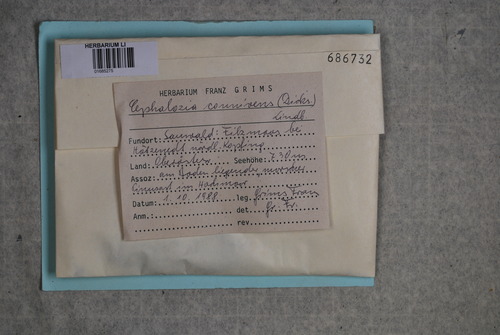 HERBARIUM LI
686732
HERBARIUM FRANZ GRIMS
Cephalozia connivens (Dicks)
Lindb
Fundort: Sauwald: Filzmoos bei
nördl. Kopfing
Land: Oberösterr. Seehöhe: 730 m
Assoz: am Boden liegender morscher
im Hochmoor
Datum: 1. 10. 1988 leg. Grims Franz
Anm.: det. Gr. Fr.
rev.